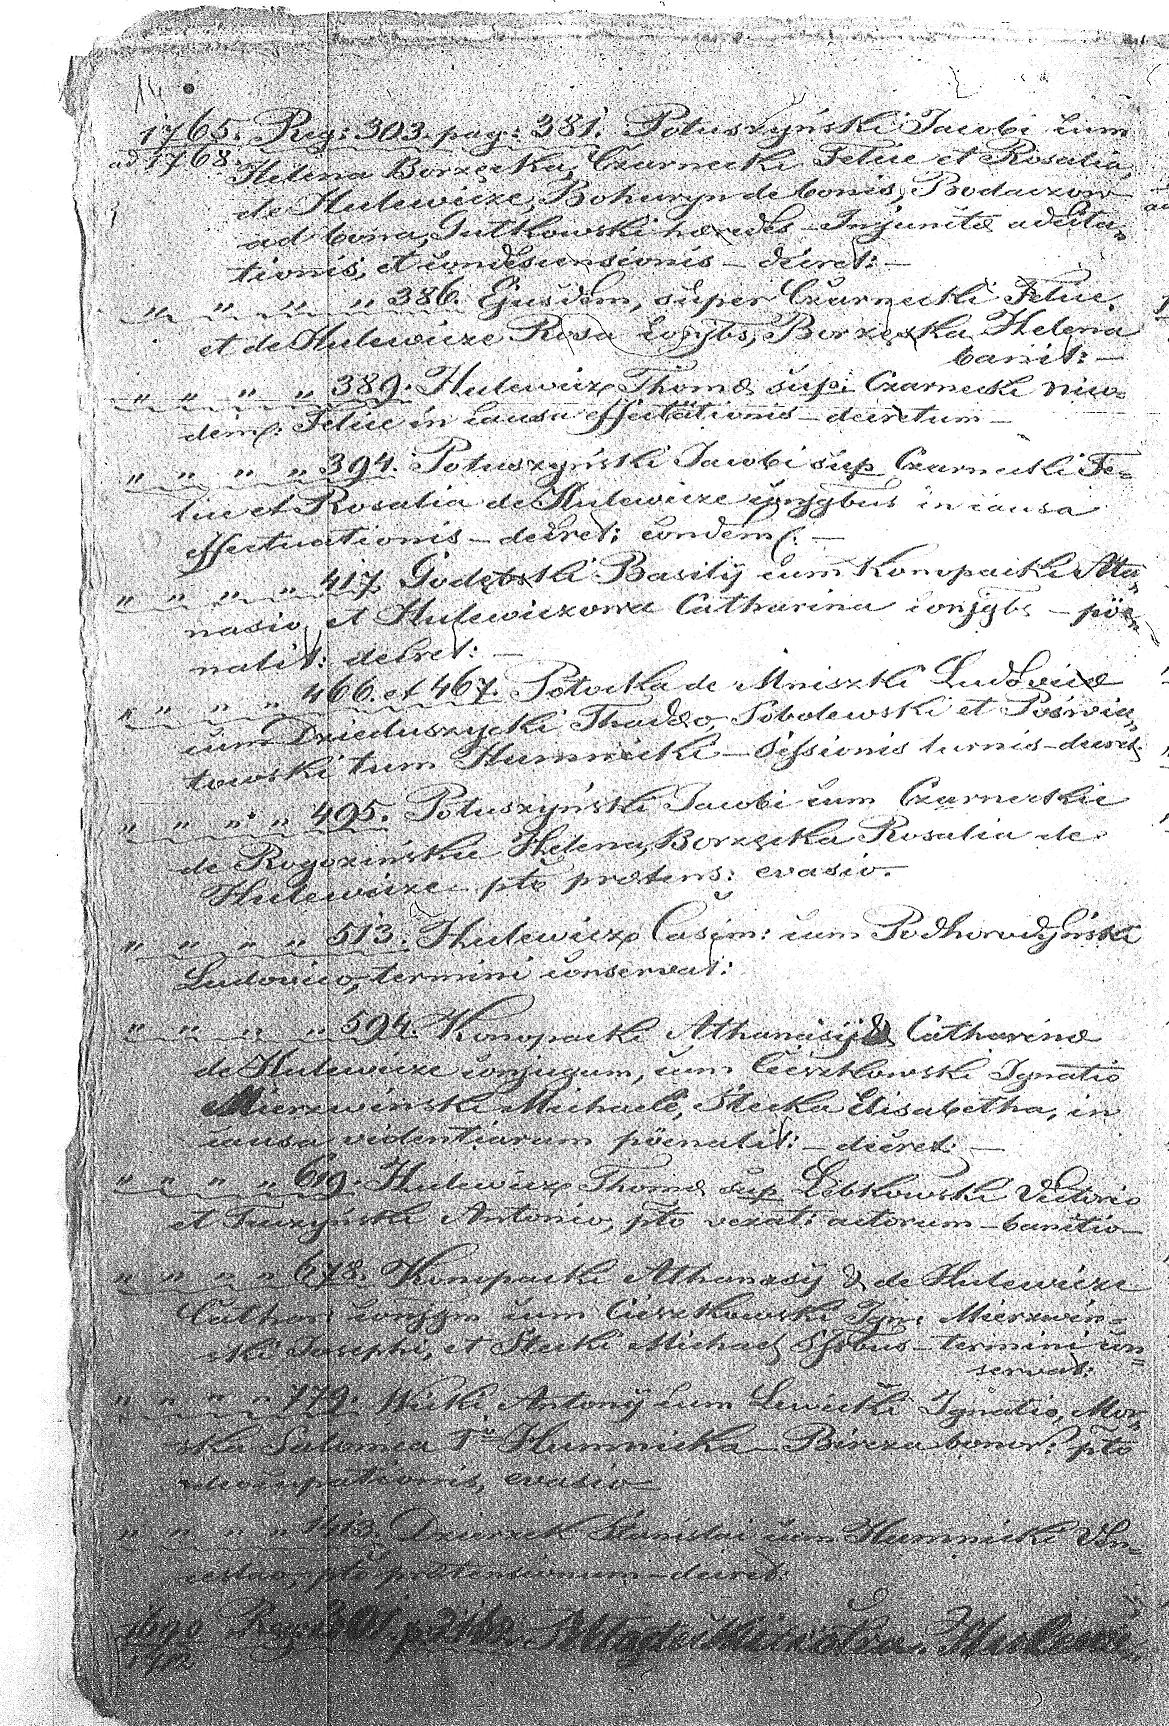 14
1765. Reg: 303. pag: 381. Potuszyński Jacobi cum
ad 1768. Helena Borzęcka, Czarnecki Felice et Rosalia
de Hulewicze, Bohuryn de bonis,
ad bona, Gutkowski haeredes Injunctae adcita„
tionis, et condescensionis – decret: –
„ „ „ „ 386. Ejusdem, super Czarnecki Felice
et de Hulewicze Rosa conjgbs, Borzęcka Helena
banit: –
„ „ „ „ 389. Hulewicz Thomae sup: Czarnecki nico„
dem: Felice in causa effectationis – decretum –
„ „ „ „ 394. Potuszyński Jacobi sup Czarnecki Fe=
lice et Rosalia de Hulewicze conjgbus in causa
effectuationis – decret: condem: –
„ „ „ „ 417. Godębski Basilij cum Konopacki Ata„
nasio, et Hulewiczowa Catharina conjgbs – pöe„
nalit: decret: –
„ „ „ „ 466. et 467. Potocka de Mniszki Ludovica
cum Dzieduszycki Thadeo, Sobolewski et Poświa„
towski tum Humnicki – Sessionis turnis – decret:
„ „ „ „ 495. Potuszyński Jacobi cum Czarneckie
de Rogozińskie Helena, Borzęcka Rosalia de
Hulewicze – pto prætens: evasio.
„ „ „ „ 513. Hulewicz Casim: cum Podhorodyński
Ludovico, termini conservat:
„ „ „ „ 594. Konopacki Athanasij & Catharinae
de Hulewicze conjugum, cum Cieszkowski Ignatio
Mierzwiński Michaele, Stecka Elisabetha, in
causa videntiarum pöenalit: – decret: –
„ „ „ „ 619. Hulewicz Thomae sup Łebkowski Victorio
et Tuczyński Antonio, pto vexat: actorum – banitio –
„ „ „ „ 678. Konopacki Athanasij & de Hulewicze
Cathar: conjgm cum Cieszkowski Ign: Mierzwin=
ski Josephi, et Stecki Michael – termini con=
servat:
„ „ „ „ 779. Antonij cum Lewicki Ignatio, Mor„
ska Salomea Humnicka – Bircza bonor: pto
deocupationis, evasio –
„ „ „ „ 1413. Dzierzek Stanislai cum Humnicki Ven=
ceslao, pto prætensionum – decret:
1690 Reg: 301. p.
1702